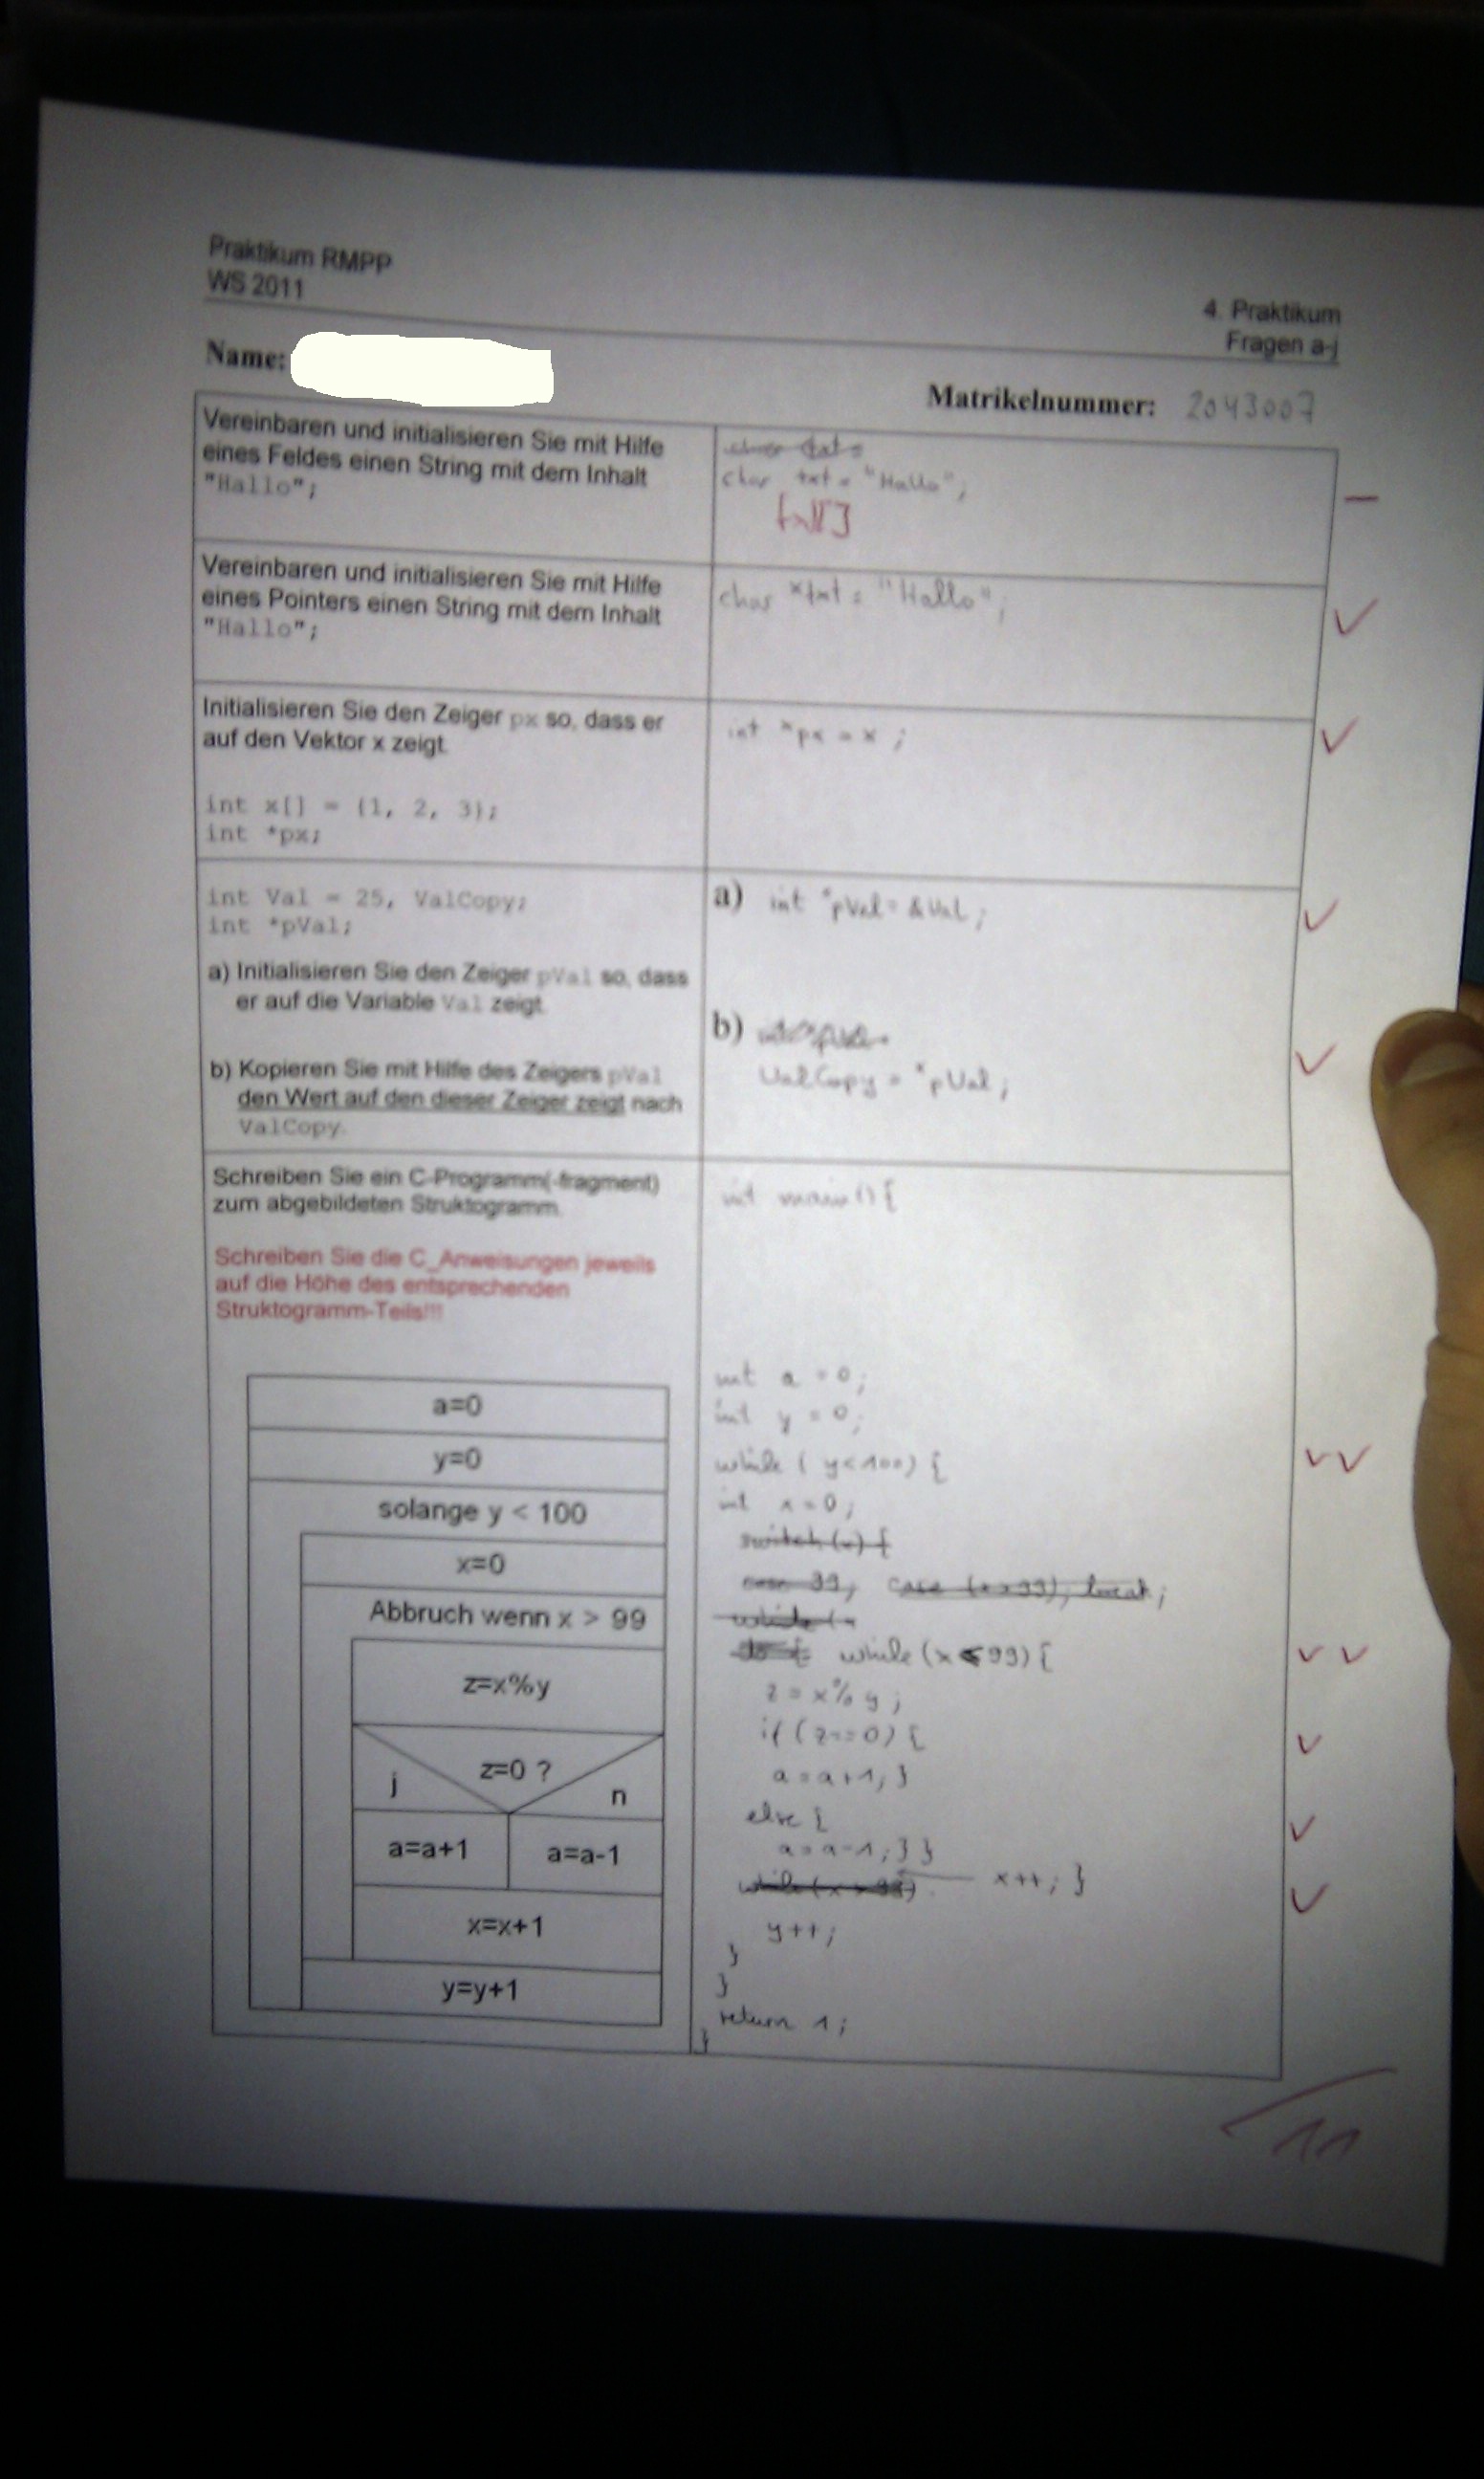 Praktikum RMPP
WS 2011
4. Praktikum
Fragen a-j
Name:
Matrikelnummer: 2043007
Vereinbaren und initialisieren Sie mit Hilfe
eines Feldes einen String mit dem Inhalt
"Hallo";
char txt = "Hallo";
Vereinbaren und initialisieren Sie mit Hilfe
eines Pointers einen String mit dem Inhalt
"Hallo";
char *txt = "Hallo";
Initialisieren Sie den Zeiger px so, dass er
auf den Vektor x zeigt.
int x[] = {1, 2, 3};
int *px;
int *px = x ;
int Val = 25, ValCopy;
int *pVal;
a) Initialisieren Sie den Zeiger pVal so, dass
er auf die Variable Val zeigt.
b) Kopieren Sie mit Hilfe des Zeigers pVal
den Wert auf den dieser Zeiger zeigt nach
ValCopy.
a) int *pVal = &Val ;
b)
ValCopy = *pVal ;
Schreiben Sie ein C-Programm(-fragment)
zum abgebildeten Struktogramm.
Schreiben Sie die C_Anweisungen jeweils
auf die Höhe des entsprechenden
Struktogramm-Teils!!!
a=0
y=0
solange y < 100
x=0
Abbruch wenn x > 99
z=x%y
z=0 ?
j n
a=a+1 a=a-1
x=x+1
y=y+1
int main() {
int a = 0;
int y = 0;
while ( y<100) {
int x = 0 ;
switch (x) {
case 99, case (x>99), break ;
while (x
do { while (x < 99) {
z = x % y ;
if (z==0) {
a = a+1; }
else {
a = a-1; } }
while (x > 99) x++; }
y++;
}
}
return 1;
}
11